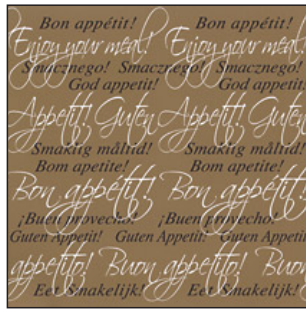 Bon appétit! Bon appétit!
Enjoy your meal! Enjoy your meal!
Smacznego! Smacznego! Smacznego!
God appetit! God appetit!
Appetit! Guten Appetit! Guten
Smaklig måltid! Smaklig måltid!
Bom apetite! Bom apetite!
Bon appétit! Bon appétit!
¡Buen provecho! ¡Buen provecho!
Guten Appetit! Guten Appetit! Guten Appetit!
appetito! Buon appetito! Buon
Eet Smakelijk! Eet Smakelijk!